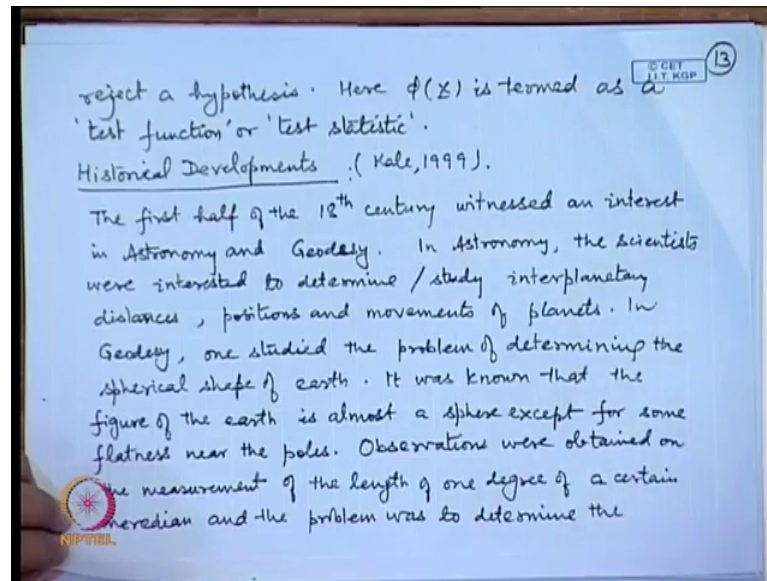 © CET
I.I.T. KGP
13
reject a hypothesis. Here ϕ(X) is termed as a
'test function' or 'test statistic'.
Historical Developments : (Kale, 1999).
The first half of the 18th century witnessed an interest
in Astronomy and Geodesy. In Astronomy, the scientists
were interested to determine / study interplanetary
distances, positions and movements of planets. In
Geodesy, one studied the problem of determining the
spherical shape of earth. It was known that the
figure of the earth is almost a sphere except for some
flatness near the poles. Observations were obtained on
the measurement of the length of one degree of a certain
meredian and the problem was to determine the
NPTEL